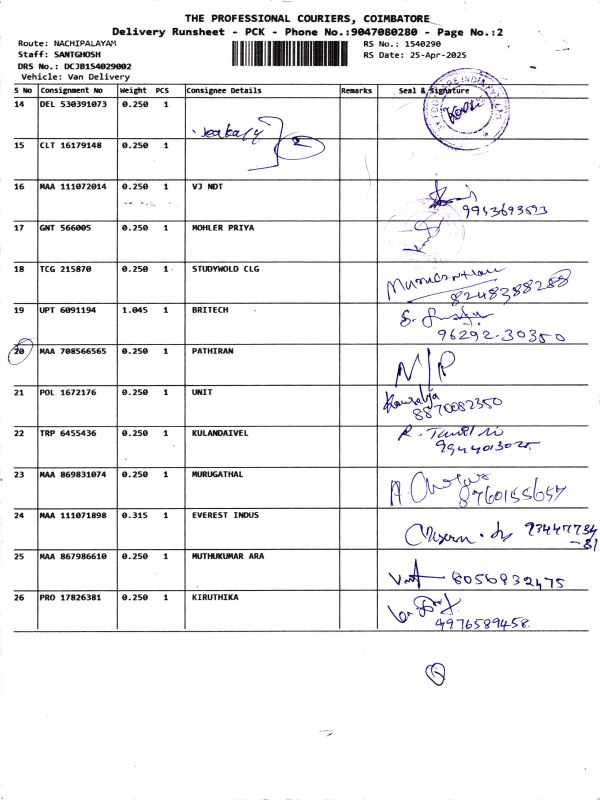 THE PROFESSIONAL COURIERS, COIMBATORE
Delivery Runsheet - PCK - Phone No.:9047080280 - Page No.:2
Route: NACHIPALAYAM RS No.: 1540290
Staff: SANTGHOSH RS Date: 25-Apr-2025
DRS No.: DCJB154029002
Vehicle: Van Delivery
S No Consignment No Weight PCS Consignee Details Remarks Seal & Signature
14 DEL 530391073 0.250 1
15 CLT 16179148 0.250 1
16 MAA 111072014 0.250 1 VJ NDT
17 GNT 566005 0.250 1 MOHLER PRIYA
18 TCG 215870 0.250 1 STUDYWOLD CLG
8248388288
19 UPT 6091194 1.045 1 BRITECH
96292-30350
20 MAA 708566565 0.250 1 PATHIRAN N/P
21 POL 1672176 0.250 1 UNIT
8870082350
22 TRP 6455436 0.250 1 KULANDAIVEL
23 MAA 869831074 0.250 1 MURUGATHAL
8760155657
24 MAA 111071898 0.315 1 EVEREST INDUS
25 MAA 867986610 0.250 1 MUTHUKUMAR ARA
8056932475
26 PRO 17826381 0.250 1 KIRUTHIKA
4976589458